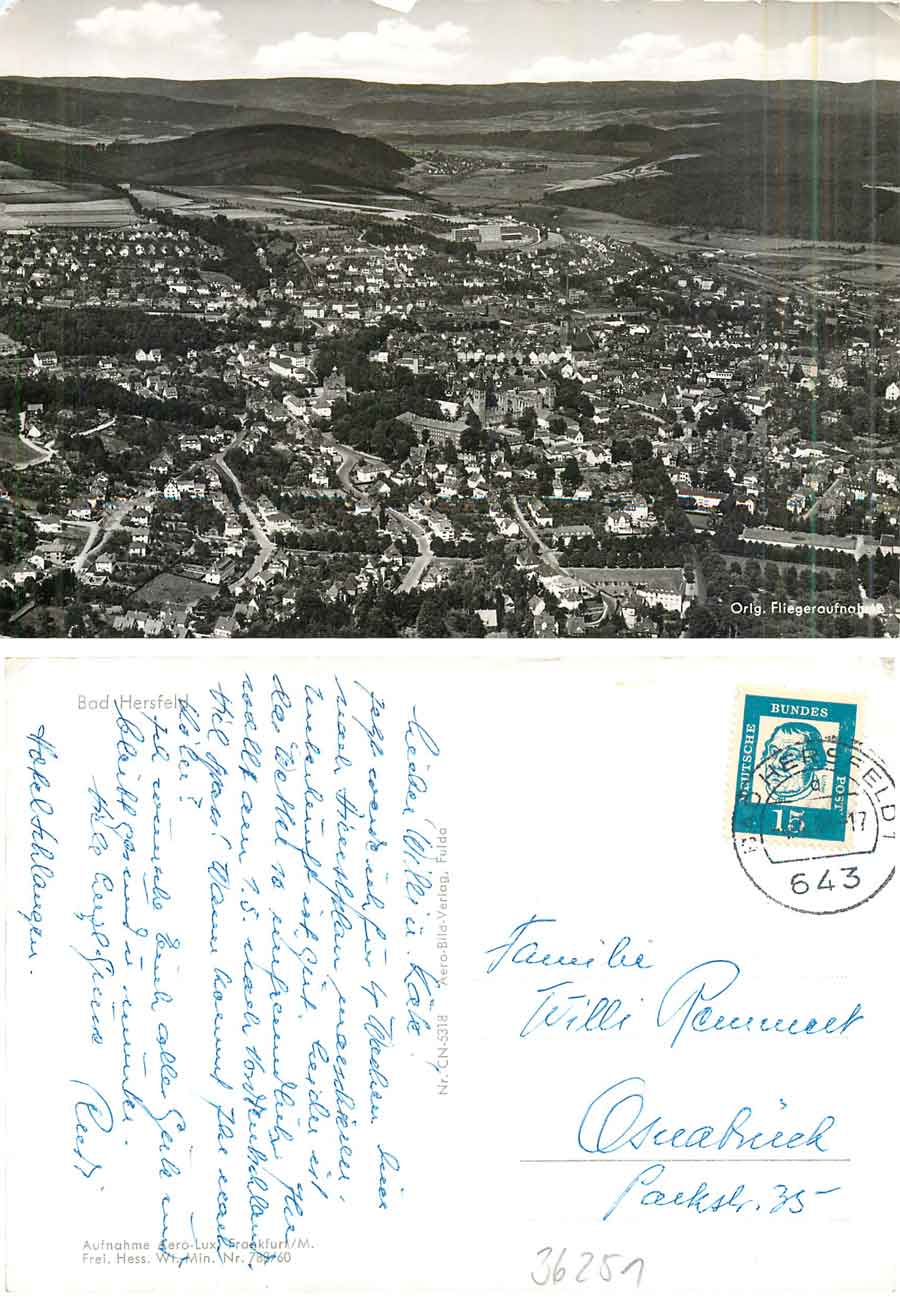 Orig. Fliegeraufnahme
Bad Hersfeld
Lieber Willi u. Käte,
jetzt werde ich für 4 Wochen hier
nach
ist gut. Leider ist
das Wetter so unfreundlich. Ihr
wollt am 7.5. nach
Viel Spass! Wann kommt Ihr nach
Ich wünsche Euch alles Gute und
bleibt gesund u. munter.
Viele herzl. Grüße
Aufnahme Aero-Lux, Frankfurt/M.
Frei. Hess. Wi. Min. Nr. 788/60
Nr. CN-5318 Aero-Bild-Verlag, Fulda
DEUTSCHE BUNDES POST
15
BAD HERSFELD 1
643
Familie
Willi Remmert
Osnabrück
Parkstr. 35
36251